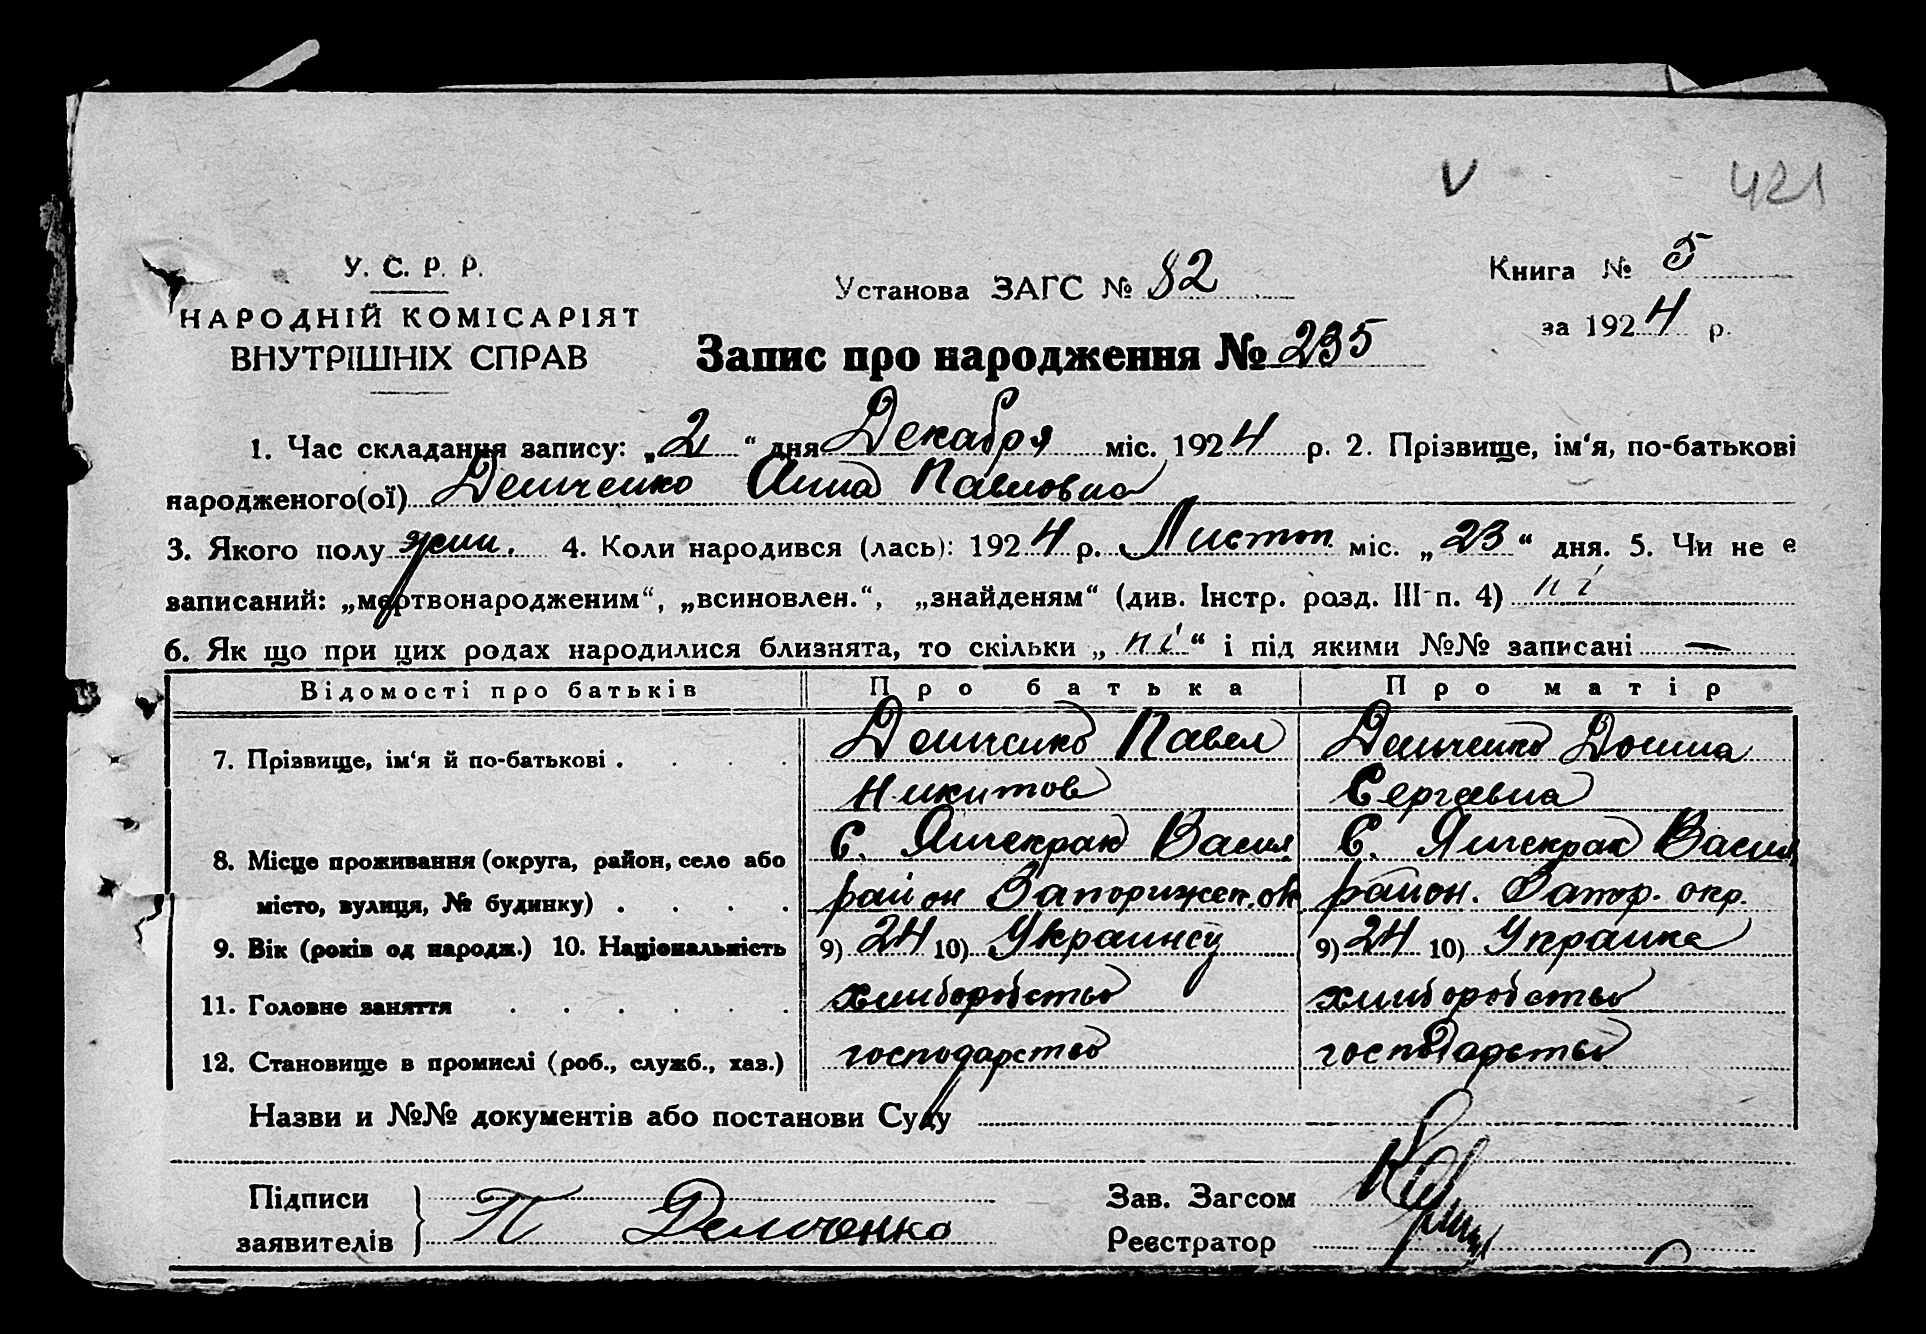 V 421
У. С. Р. Р.
НАРОДНІЙ КОМІСАРІЯТ
ВНУТРІШНІХ СПРАВ
Установа ЗАГС № 82
Книга № 5
за 1924 р.
Запис про народження № 235
1. Час складання запису: „2“ дня Декабря міс. 1924 р. 2. Прізвище, ім‘я, по-батькові
народженого(ої) Демченко Анна Павловна
3. Якого полу жин. 4. Коли народився (лась): 1924 р. Листоп міс. „23“ дня. 5. Чи не є
записаний: „мертвонародженим“, „всиновлен.“, „знайденям“ (див. Інстр. розд. III п. 4) ні
6. Як що при цих родах народилися близнята, то скільки „ні“ і під якими №№ записані —
Відомості про батьків Про батька Про матір
7. Прізвище, ім‘я й по-батькові . . . . Демченко Павел Демченко Домна
Никитов Сергеевна
8. Місце проживання (округа, район, село або С. Янчекрак Васил. С. Янчекрак Васил
місто, вулиця, № будинку) . . . . район Запорижск. ок район. Запор. окр.
9. Вік (років од народж.) 10. Національність 9) 24 10) Украинец 9) 24 10) Украинка
11. Головне заняття . . . . . . хлиборобство хлиборобство
12. Становище в промислі (роб., служб., хаз.) господарство господарство
Назви и №№ документів або постанови Суду
Підписи
заявителів } П Демченко
Зав. Загсом
Реєстратор